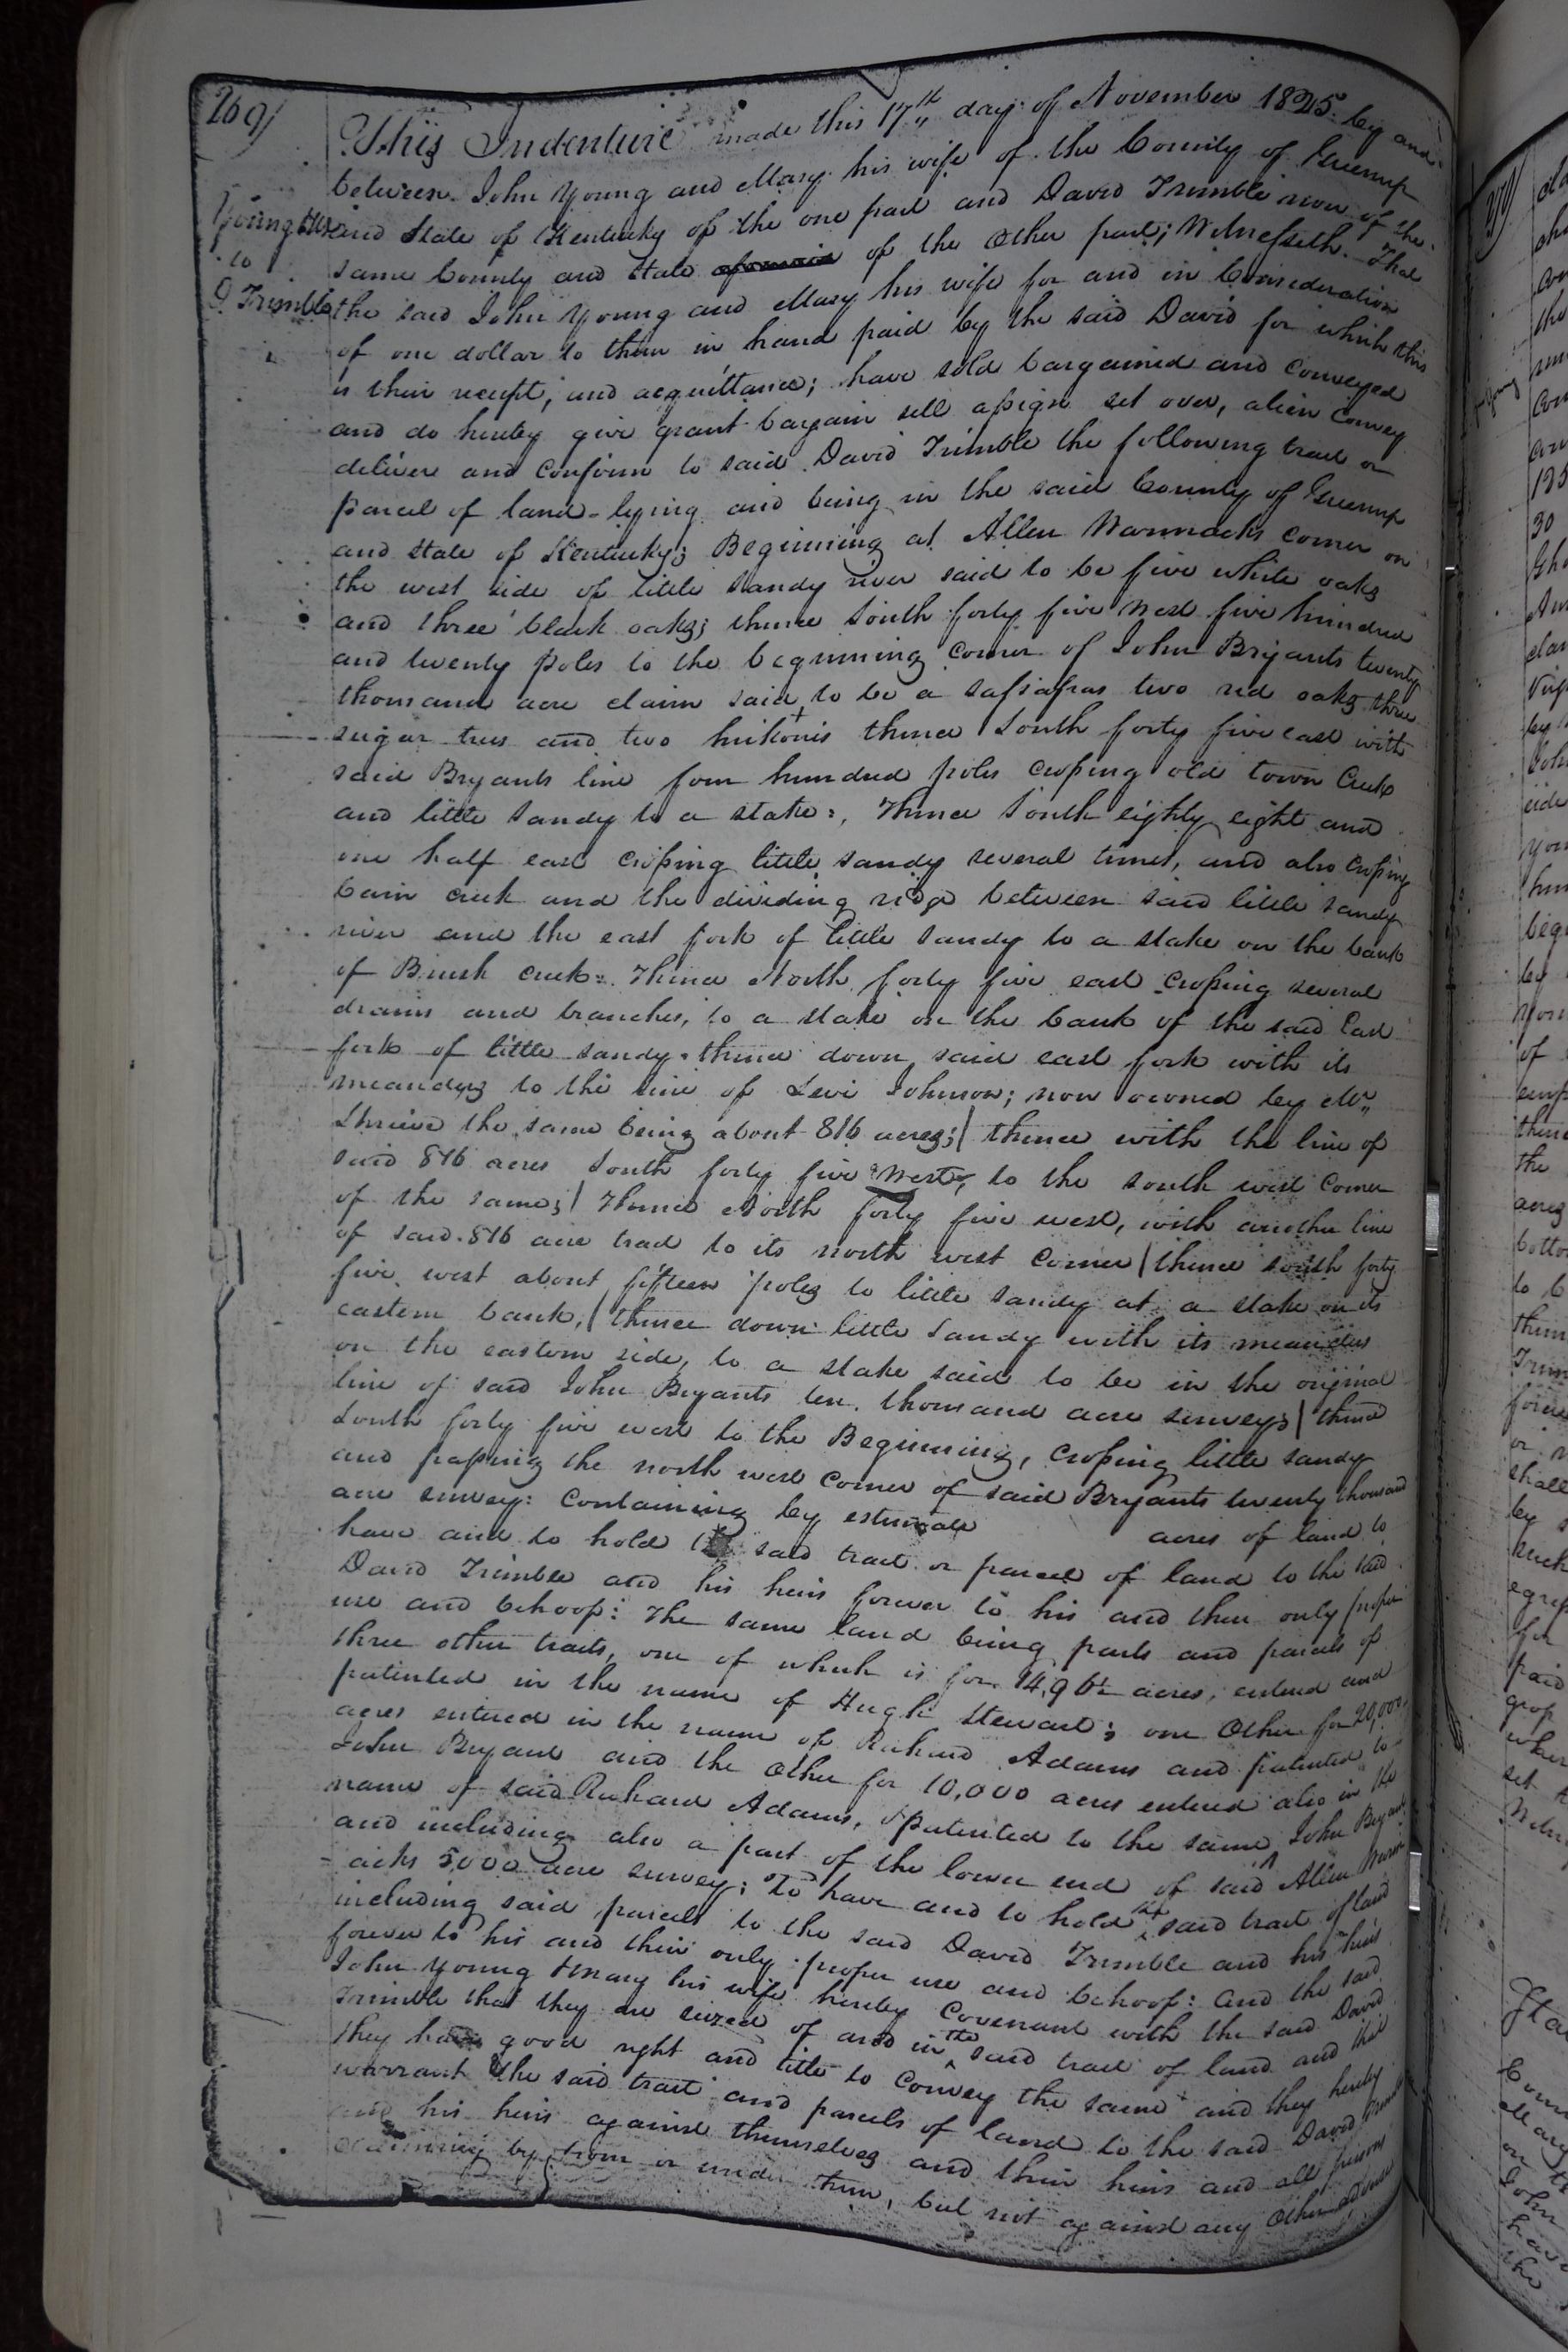 269/
Young & Ux
to
D. Trimble
This Indenture made this 17th day of November 1825. by and
between John Young and Mary his wife of the County of Greenup
and State of Kentucky of the one part and David Trimble now of the
same County and State of the other part; Witnesseth. That
the said John Young and Mary his wife for and in Consideration
of one dollar to them in hand paid by the said David for which this
is their receipt, and acquittance; have sold bargained and conveyed
and do hereby give grant bargain sell assign set over, alien Convey
deliver and Confirm to said David Trimble the following tract or
parcel of land - lying and being in the said County of Greenup
and State of Kentucky; Beginning at Allen Wammacks corner on
the west side of little Sandy river said to be five white oaks
and three black oaks; thence South forty five West five hundred
and twenty poles to the beginning corner of John Bryants twenty
thousand acre claim said to be a sassafras two red oaks three
sugar trees and two hickories thence South forty five east with
said Bryants line four hundred poles crossing old town Creek
and little Sandy to a stake; Thence South eighty eight and
one half east crossing little sandy several times, and also crossing
Cain creek and the dividing ridge between said little sandy
river and the east fork of little Sandy to a stake on the bank
of Brush creek: Thence North forty five east crossing several
drains and branches, to a stake on the bank of the said East
fork of little sandy. thence down said east fork with its
meanders to the line of Levi Johnson; now owned by Mr.
Shrieve the same being about 816 acres;| thence with the line of
said 816 acres South forty five West, to the south west Corner
of the same;| Thence North forty five west, with another line
of said 816 acre tract to its north west Corner| thence south forty
five west about fifteen poles to little Sandy at a stake on its
eastern bank,| thence down little Sandy with its meanders
on the eastern side, to a stake said to be in the original
line of said John Bryants ten thousand acre survey;| thence
South forty five west to the Beginning, crossing little sandy
and passing the north west Corner of said Bryants twenty thousand
acre survey: Containing by estimate acres of land to
have and to hold the said tract or parcel of land to the said
David Trimble and his heirs forever to his and their only proper
use and behoof: The same land being parts and parcels of
three other tracts, one of which is for acres, entered and
patented in the name of Hugh Stewart; one Other for 20,000,
acres entered in the name of Richard Adams and patented to
John Bryant and the other for 10,000 acres entered also in the
name of said Richard Adams, & patented to the same John Bryant,
and including also a part of the lower end of said Allen Wamm
-acks 5000 acre survey; To have and to hold the said tract of land
including said parcels to the said David Trimble and his heirs
forever to his and their only proper use and behoof: and the said
John Young & Mary his wife hereby Covenant with the said David
Trimble that they are seized of and in the said tract of land and that
they have good right and title to Convey the same and they hereby
warrant the said tract and parcels of land to the said David Trimble
and his heirs against themselves and their heirs and all persons
claiming by from or under them, but not against any Other adverse